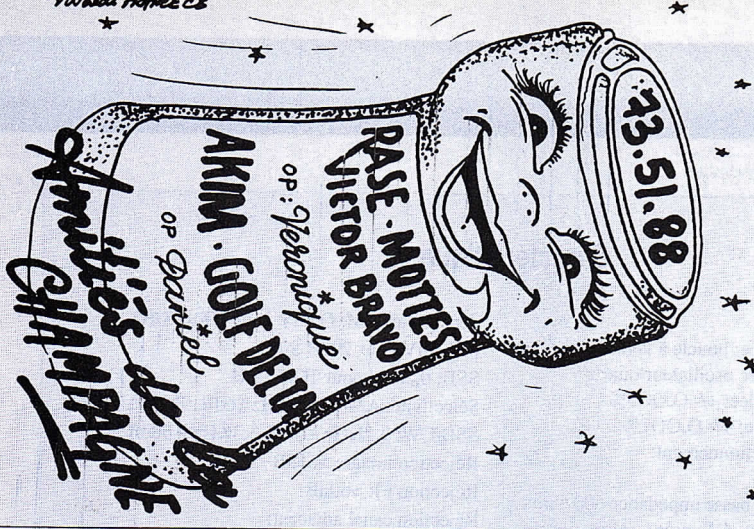 73.51.88
RASE-MOTTES
VICTOR BRAVO
OP: Véronique
AKIM. GOLF DELTA
OP Daniel
Amitiés de la
CHAMPAGNE